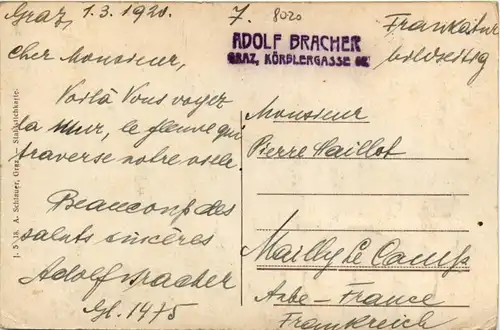 Graz, 1.3.1920.
7.
8020
Frankatur
bildseitig
ADOLF BRACHER
GRAZ, KÖRBLERGASSE
Cher Monsieur,
Voilà Vous voyez
la Mur, le fleuve qui
traverse notre
Beaucoup des
saluts sincères
Adolf Bracher
Gl. 1475
Monsieur
Pierre Maillot
Mailly Le Camp
Aube - France
Frankreich
A. Schlauer, Graz